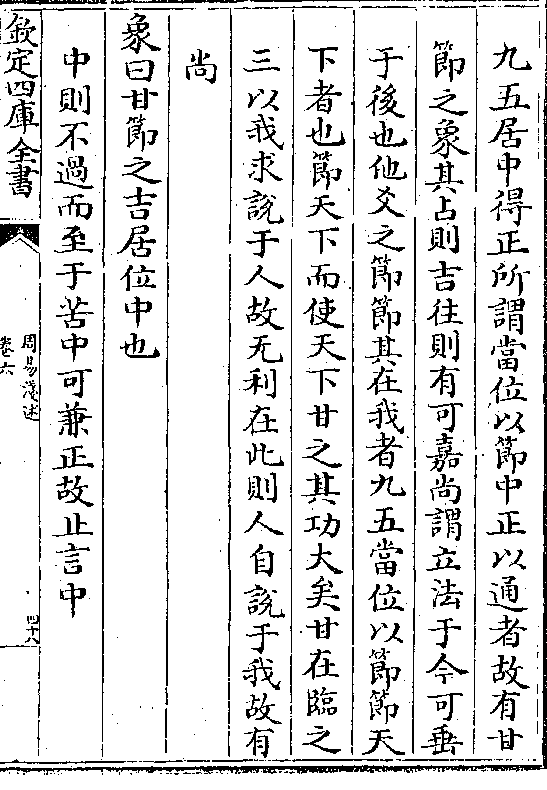 九五居中得正所謂當位以節中正以通者故有甘
節之象其占則吉往則有可嘉尚謂立法于今可垂
于後也他爻之節節其在我者九五當位以節節天
下者也節天下而使天下甘之其功大矣甘在臨之
三以我求說于人故无利在此則人自說于我故有
尚
象曰甘節之吉居位中也
中則不過而至于苦中可兼正故止言中
欽定四庫全書
周易淺述
卷六
四十八